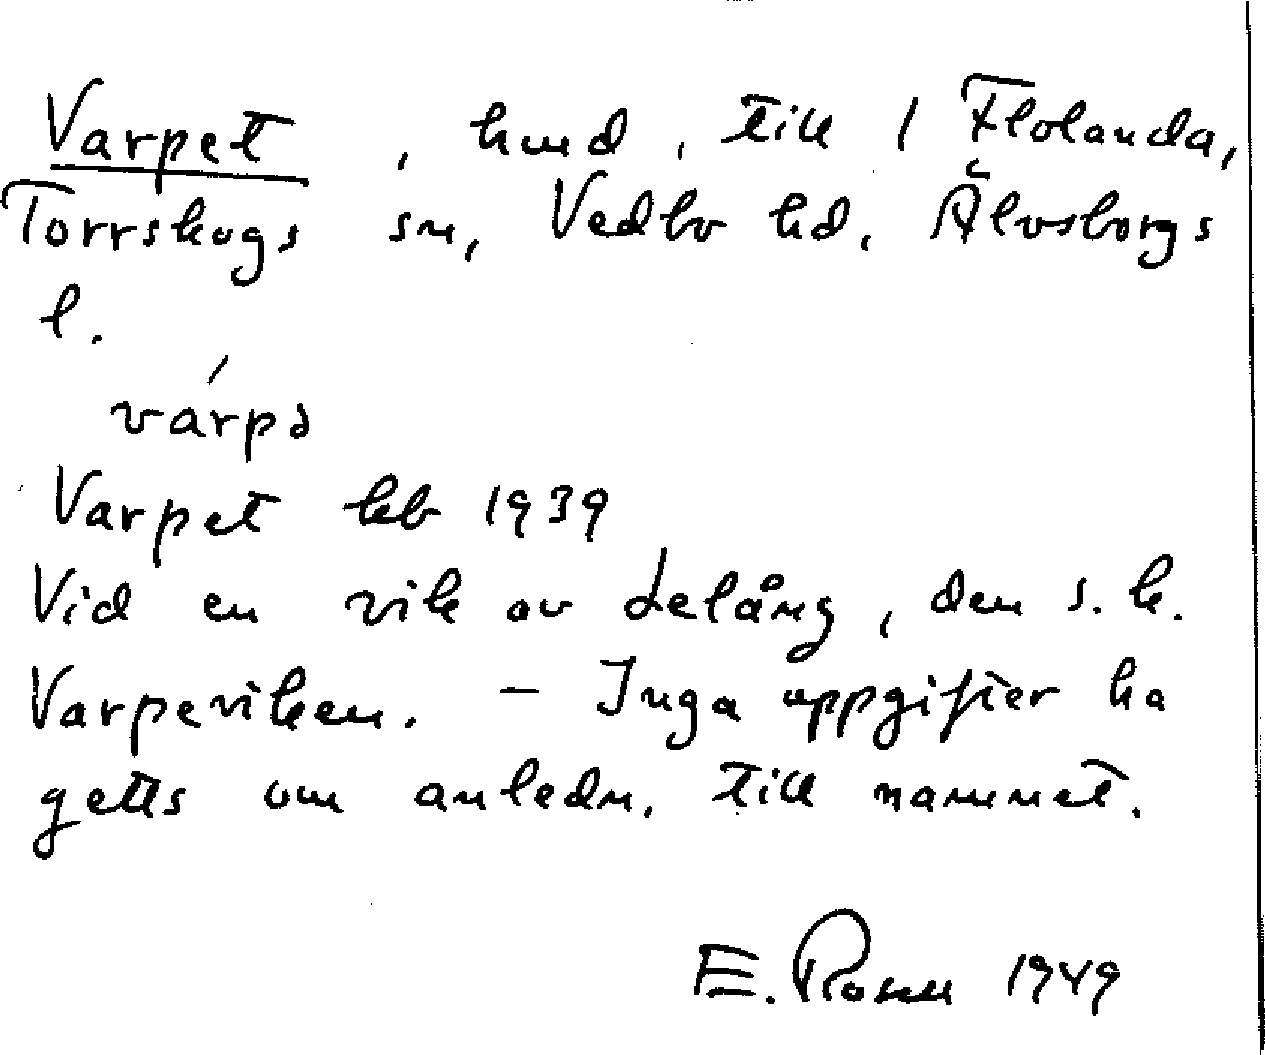 Varpet, hmd, till 1 Flolanda,
Torrskogs sn, Vedbo hd, Älvsborgs
l.
várpə
Varpet kb 1939
Vid en vik av Lelång, den s.k.
Varpeviken. – Inga uppgifter ha
getts om anledn. till namnet.
E. Rosell 1949